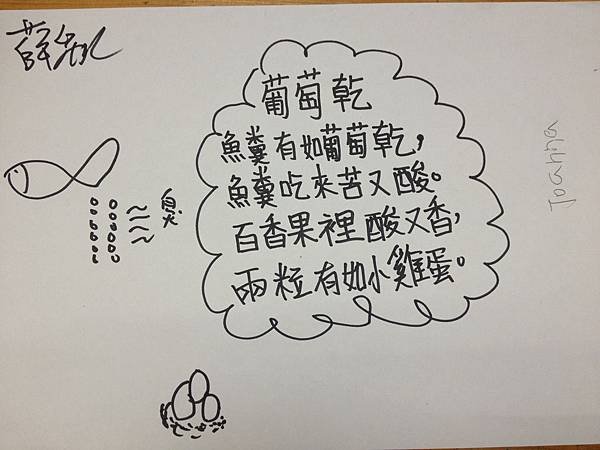 葡萄乾
魚糞有如葡萄乾，
魚糞吃來苦又酸。
百香果裡酸又香，
兩粒有如小雞蛋。
臭
Joanna